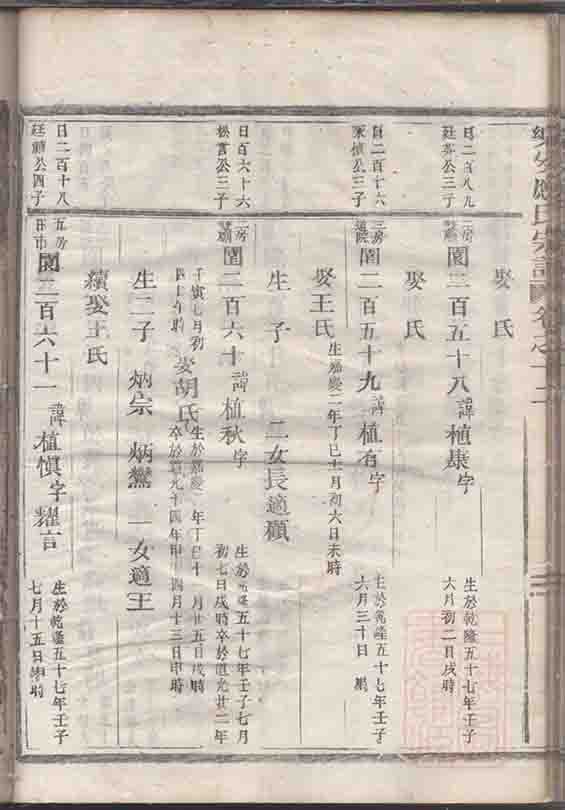 氏宗譜
卷之十二
日二百八九
廷公三子
二百五十八 諱植康字
生於乾隆五十七年壬子
六月初二日戌時
娶 氏
日二百十六
公三子
三房
二百五十九 諱植有字
生於乾隆五十七年壬子
六月三十日 時
娶王氏
生嘉慶二年丁巳十一月初六日未時
生 子 二女長適
日百六十六
松公三子
房
二百六十 諱植秋字
生於乾隆五十七年壬子七月
初七日戌時卒於道光廿二年
壬寅七月初
時
娶胡氏
生於嘉慶 年丁巳十 月廿五日戌時
卒於道光十四年甲 四月十三日申時
生二子 炳宗 炳鸞 一女適王
續娶王氏
日二百十八
廷公四子
五房
二百六十一 諱植慎字耀言
生於乾隆五十七年壬子
七月十五日 時